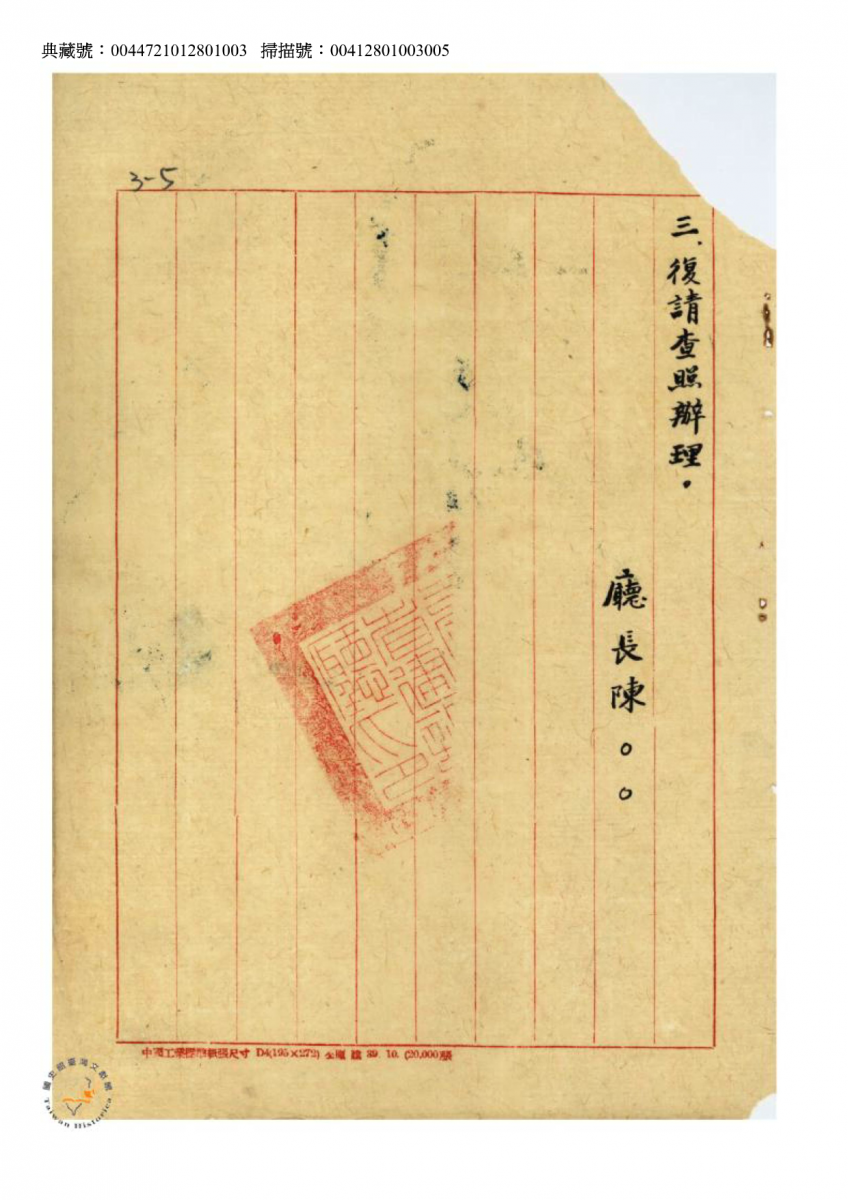 典藏號：0044721012801003 掃描號：00412801003005
3-5
三、復請查照辦理。
廳長陳○○
中國工業標準紙張尺寸 D4(195×272) 39. 10. (20,000)張
國史館臺灣文獻館
Taiwan Historica